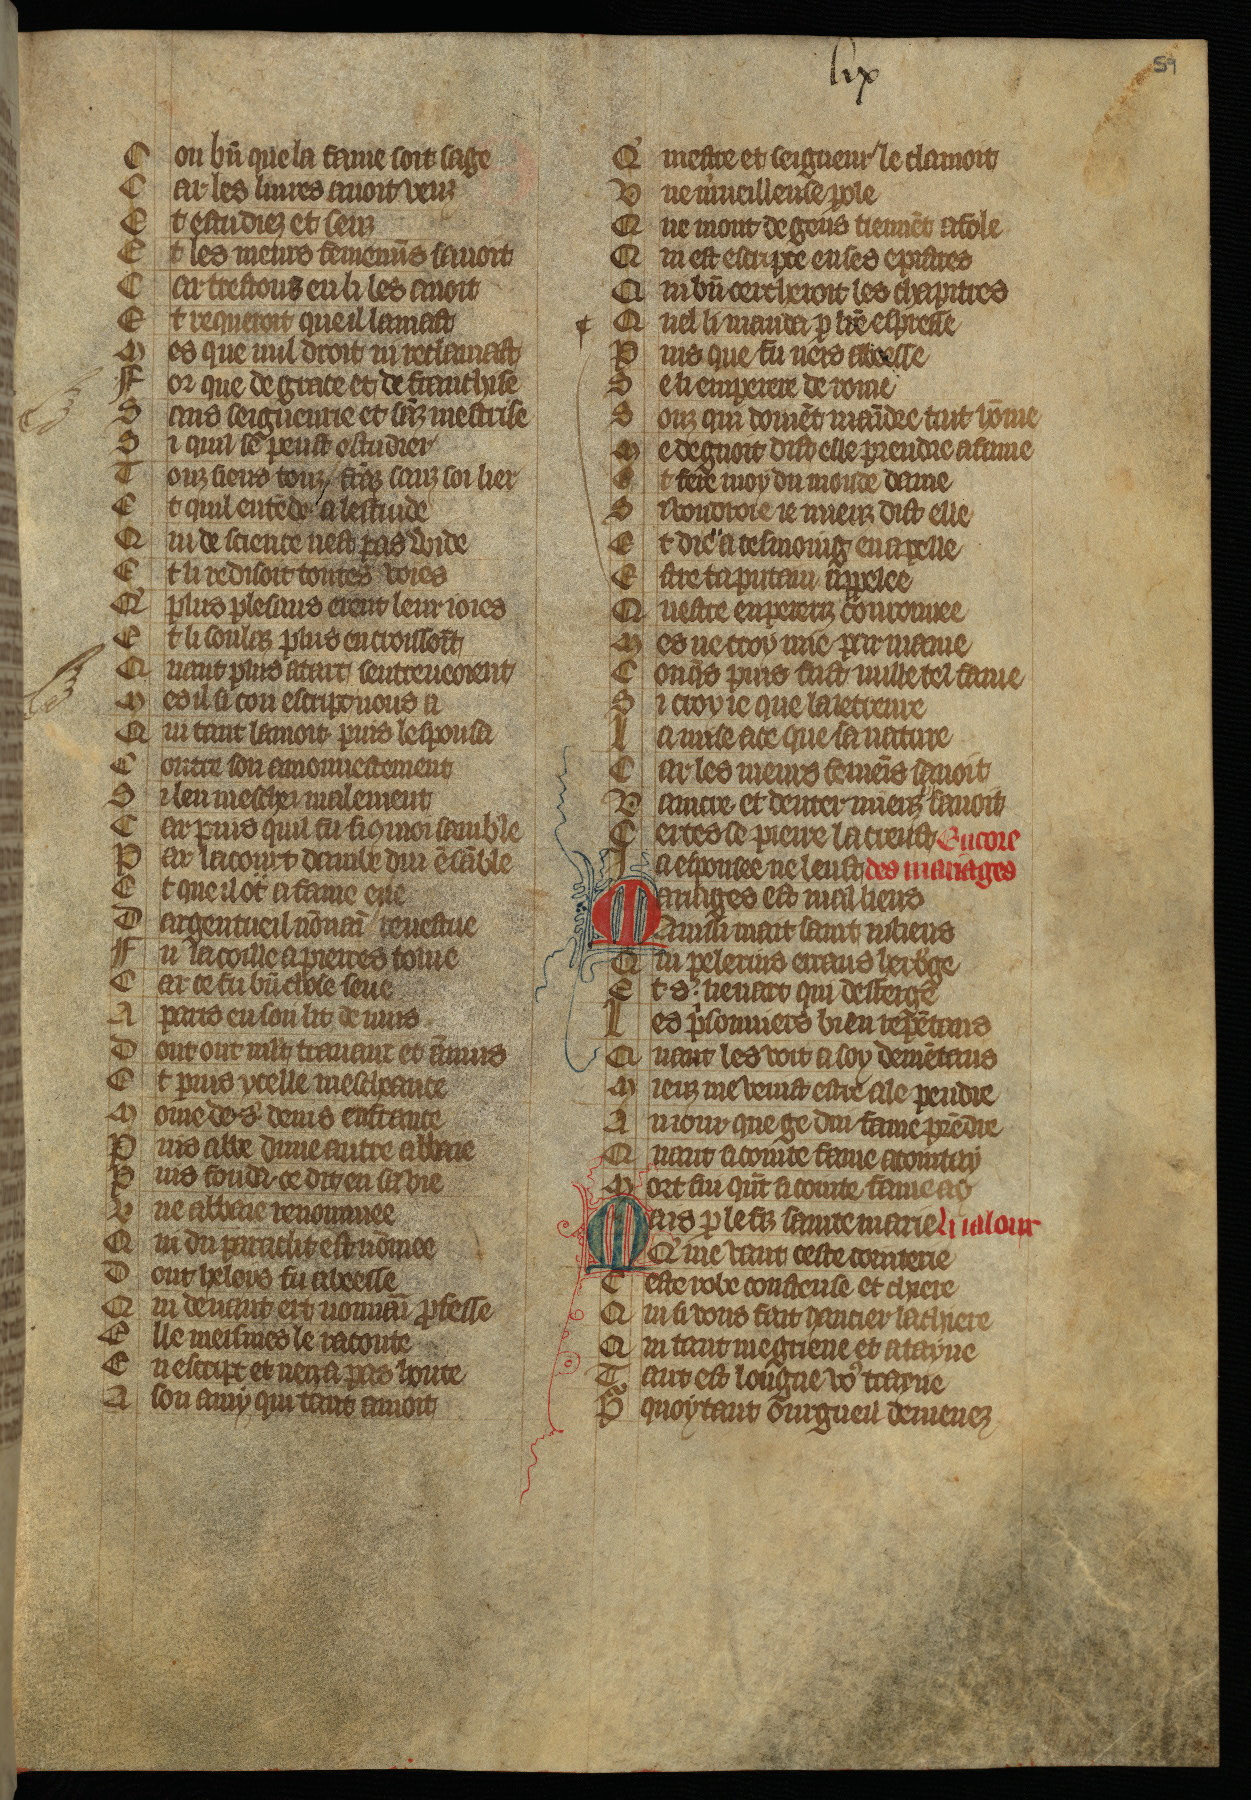 lix
59
C ou bñ que la fame soit sage
C ar les liures auoit veuz
E t estudiez et seuz
E t les meurs femenins sauoit
C ar trestouz en li les auoit
E t requeroit que il lamast
M es que nul droit ni reclamast
F or que de grace et de franchise
S ans seigneurie et sãz mestrise
S i quil se peust estudier
T ouz siens touz frãs sanz soi lier
E t quil entẽde a lestuide
Q ui de science nest pas vuide
E t li redisoit toutes voies
Q̃ plus plesans erent leur ioies
E t li soulaz plus en croissoiẽt
Q uant plus atart sentreuoient
M es il si cõ escript nous a
Q ui tant lamoit puis lespousa
C ontre son amonnestement
S i len meschei malement
C ar puis quil fu si cõ moi samble
P ar lacourt dambedui ẽsãble
E t que il ot a fame eue
D argentueil nõnaĩ reuestue
F u la coille a pierres tolue
C ar ce fu bñ chose seue
A paris en son lit de nuis
D ont out mlt trauaux et ãnuis
E t puis ycelle mescheance
M oine de .s. denis en france
P uis abbe dune autre abbaie
P uis fonda ce dit en sa vie
V ne abbaie renommee
Q ui du paraclit est nõmee
D ont heloys fu abeesse
Q ui deuant ert nonnaĩ p̃fesse
E lle meismes le raconte
E n escript et nen a pas honte
A son amy qui tant amoit
Q̃ mestre et seigneur le clamoit
V ne mueilleuse pole
Q ue mout de gens tiennẽt a fole
Q ui est escripte en ses epistres
Q ui bñ cercheroit les chapitres
Q uel li manda p lrẽ espresse
P uis que fu uers abeesse
S e li emperere de rome
S ouz qui doiuẽt maĩdre tuit hõme
M e degnoit dist elle prendre a fame
E t fere moy du monde dame
S i voudroie ie mieuz dist elle
E t dieu a tesmoing en apelle
E stre ta putain appelee
Q uestre empereriz couronnee
M es ne croy mie par mame
C onq̃s puis fust nulle tel fame
S i croy ie que la letreure
L a mise a ce que sa nature
C ar les meurs femenĩs sauoit
V aincre et denter miex sauoit
C ertes se pierre la creust Encore
L a espousee ne leust des mariages
Mariages est mal liens
Q ainssi mait saint iuliens
Q ui pelerins errans herbge
E t .s. lienart qui desferge
L es p̃sonniers bien repẽtans
Q uant les voit a soy demẽtans
M iex me venist estre ale pendre
A u iour que ge dui fame prẽdre
Q uant acointe fame acointay
M ort sui qñt acointe fame ay
Mais p le fiz sainte marie Li ialour
Q̃ me vaut ceste cointerie
C este robe cousteuse et chiere
Q ui si vous fait haucier la chiere
Q ui tant me grieue et atayne
T ant est longue vo9 trayne
P quoy tant dourgueil demenez